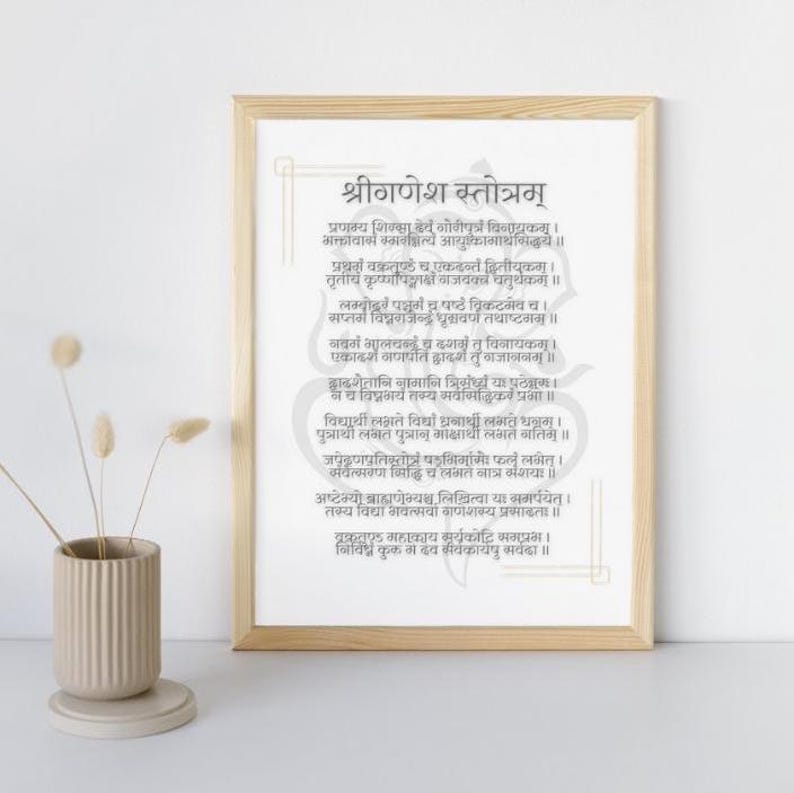 श्रीगणेश स्तोत्रम्
प्रणम्य शिरसा देवं गौरीपुत्रं विनायकम् ।
भक्तावासं स्मरेन्नित्यं आयुःकामार्थसिद्धये ॥
प्रथमं वक्रतुण्डं च एकदन्तं द्वितीयकम् ।
तृतीयं कृष्णपिङ्गाक्षं गजवक्त्रं चतुर्थकम् ॥
लम्बोदरं पञ्चमं च षष्ठं विकटमेव च ।
सप्तमं विघ्नराजेन्द्रं धूम्रवर्णं तथाष्टमम् ॥
नवमं भालचन्द्रं च दशमं तु विनायकम् ।
एकादशं गणपतिं द्वादशं तु गजाननम् ॥
द्वादशैतानि नामानि त्रिसंध्यं यः पठेन्नरः ।
न च विघ्नभयं तस्य सर्वसिद्धिकरं प्रभो ॥
विद्यार्थी लभते विद्यां धनार्थी लभते धनम् ।
पुत्रार्थी लभते पुत्रान् मोक्षार्थी लभते गतिम् ॥
जपेद्गणपतिस्तोत्रं षड्भिर्मासैः फलं लभेत् ।
संवत्सरेण सिद्धिं च लभते नात्र संशयः ॥
अष्टेभ्यो ब्राह्मणेभ्यश्च लिखित्वा यः समर्पयेत् ।
तस्य विद्या भवेत्सर्वा गणेशस्य प्रसादतः ॥
वक्रतुण्ड महाकाय सूर्यकोटि समप्रभ ।
निर्विघ्नं कुरु मे देव सर्वकार्येषु सर्वदा ॥